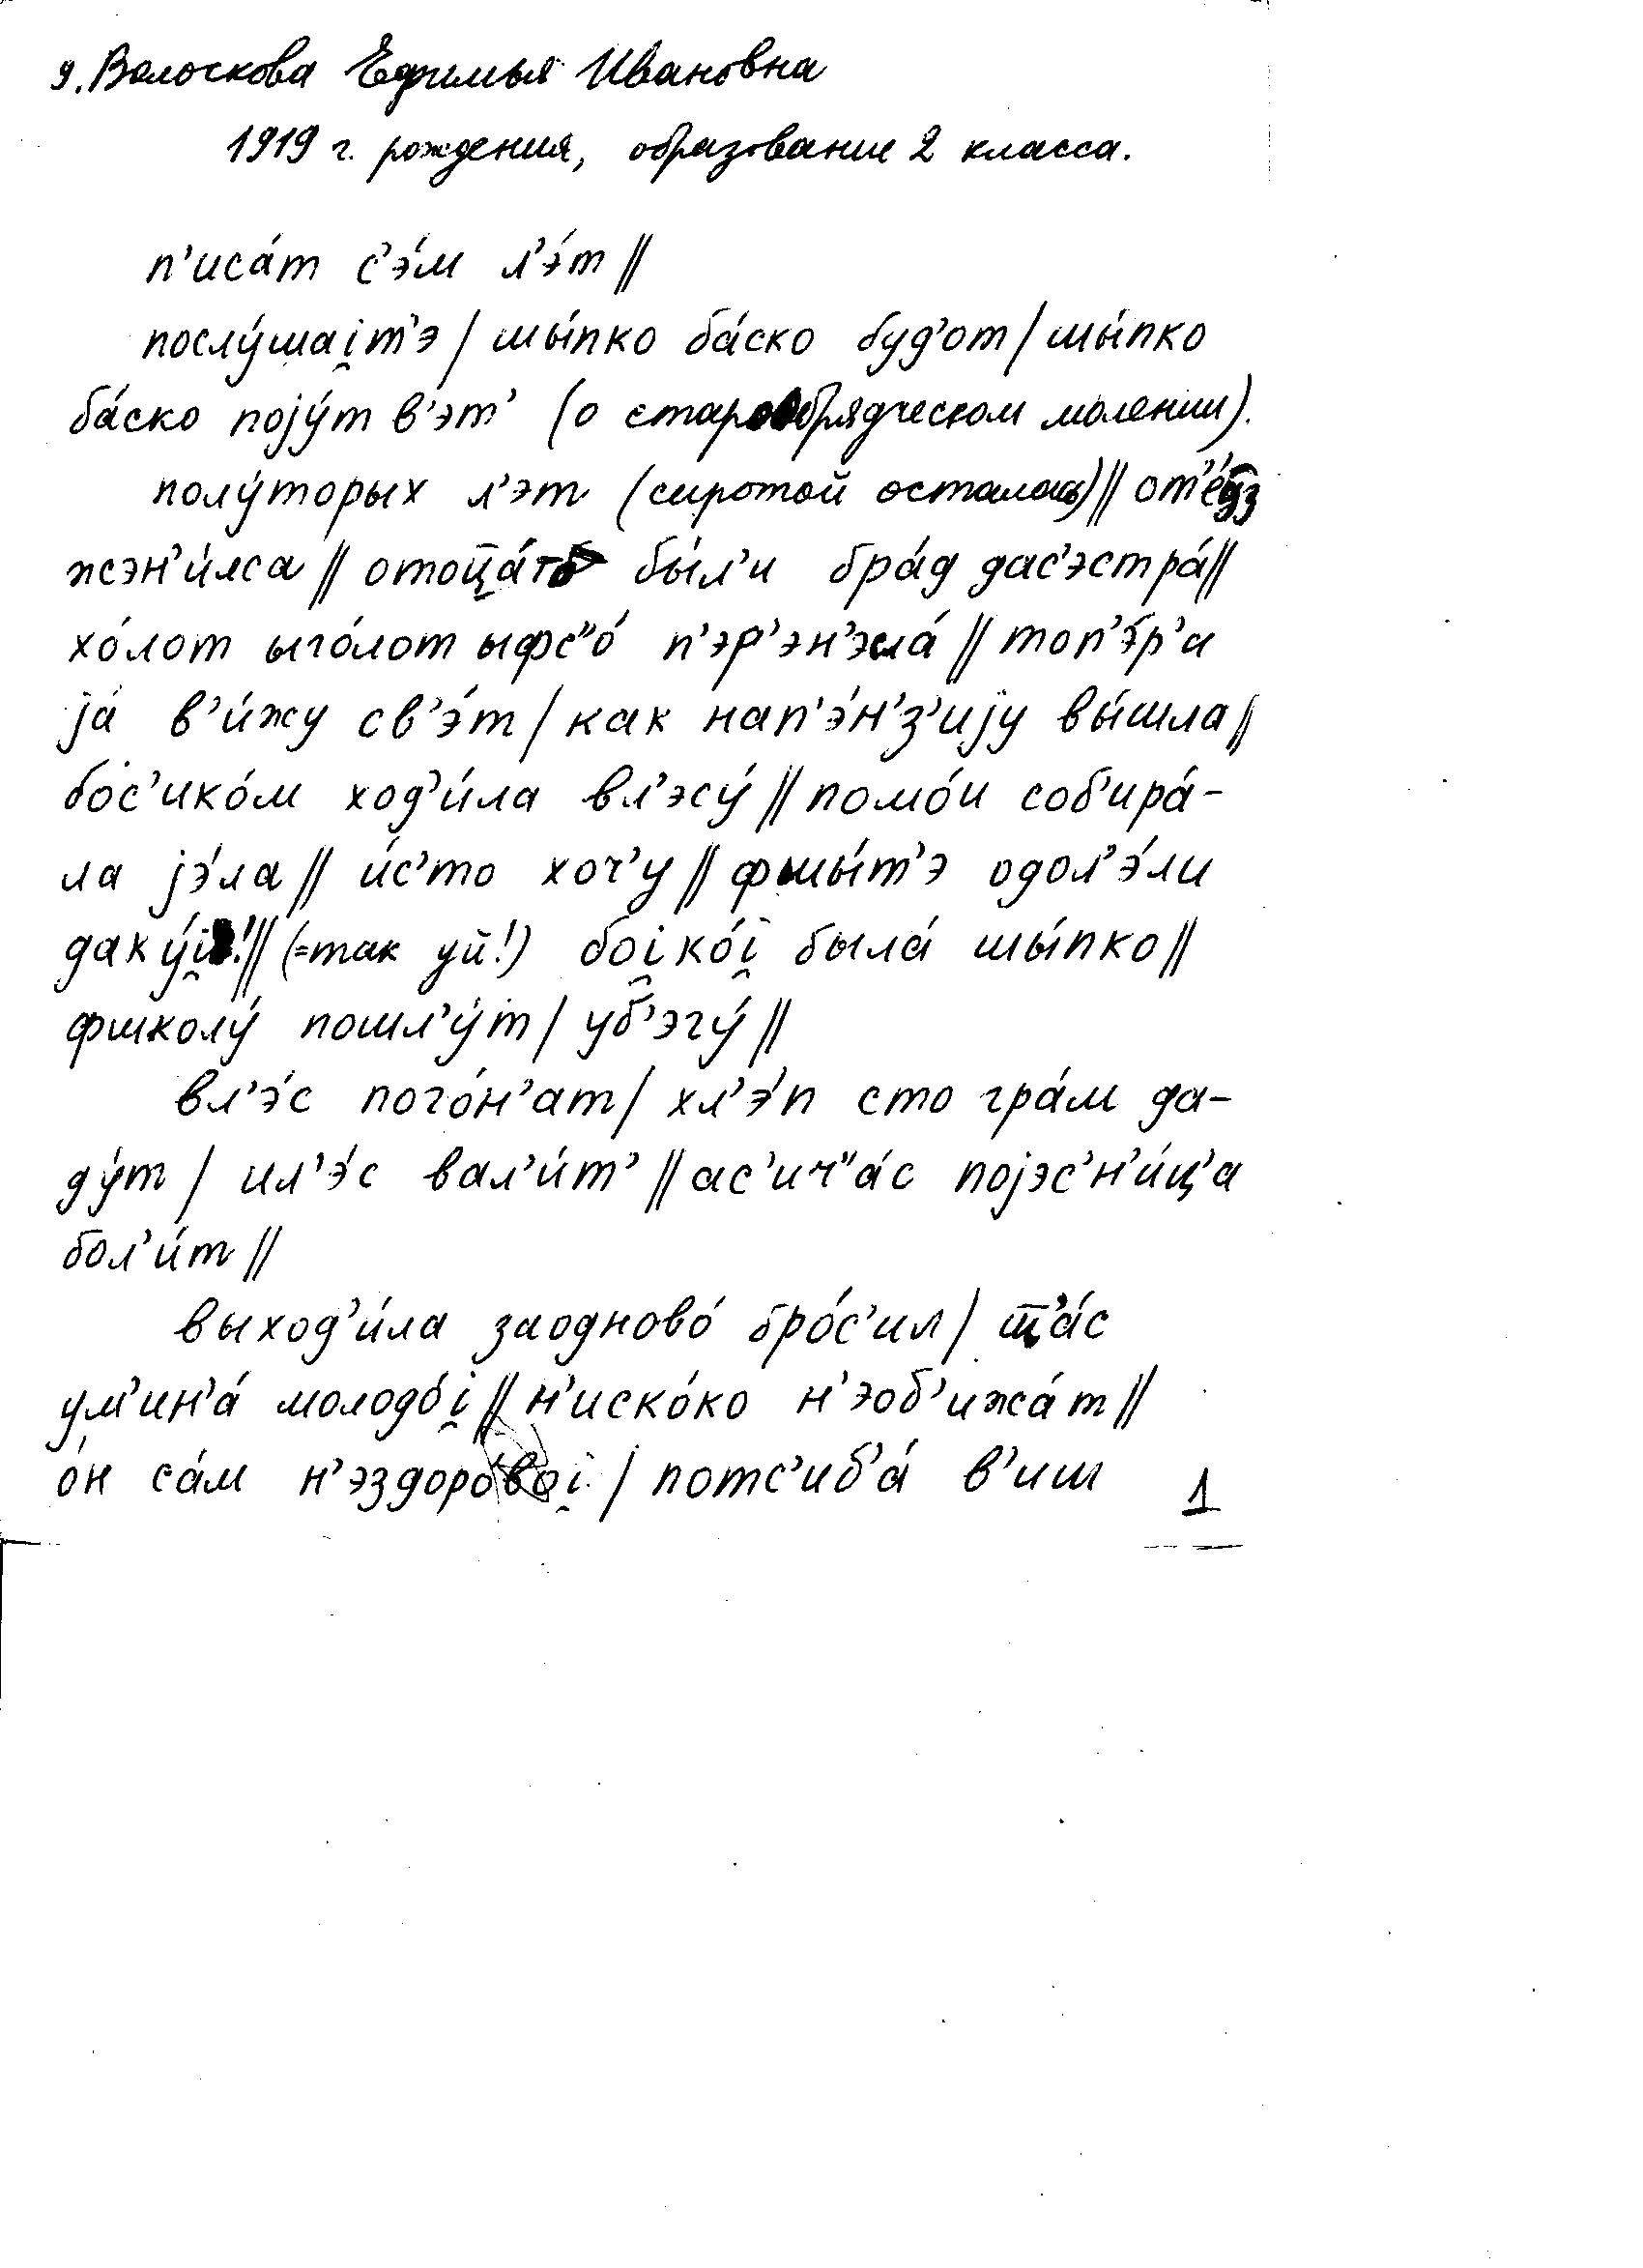 9. Волоскова Ефимья Ивановна
1919 г. рождения, образование 2 класса.
п'иса́т с'э́м л'э́т //
послу́шаi̯т'э / шы́пко ба́ско буд'от / шы́пко
ба́ско поју́т в'эт' (о старообрядческом молении).
полу́торых л'эт (сиротой осталась) //
жэн'и́лса // бы́л'и бра́д дас'эстра́ //
хо́лот ыго́лот ыфс"о́ п'эр'эн'эсла́ // топ'э́р'и
ја́ в'и́жу св'э́т / как нап'э́н'з'ију вы́шла //
бос'ико́м ход'и́ла вл'эсу́ // помо́и соб'ира́-
ла јэ́ла // и́с'то хоч'у // фшы́т'э одол'э́ли
даку́i̯! // (=так уй!) боi̯ко́i̯ была́ шы́пко //
фшколу́ пошл'у́т / уб'эгу́ //
вл'э́с пого́н'ат / хл'э́п сто гра́м да-
ду́т / ил'э́с вал'и́т' // ас'ич"а́с појэс'н'и́ц'а
бол'и́т //
выход'и́ла заодново́ бро́с'ил / т͡щ'а́с
ум'ин'а́ молодо́i̯ // н'иско́ко н'эоб'ижа́т //
о́н са́м н'эздоро́воi̯ / потс'иб'а́ в'иш
1